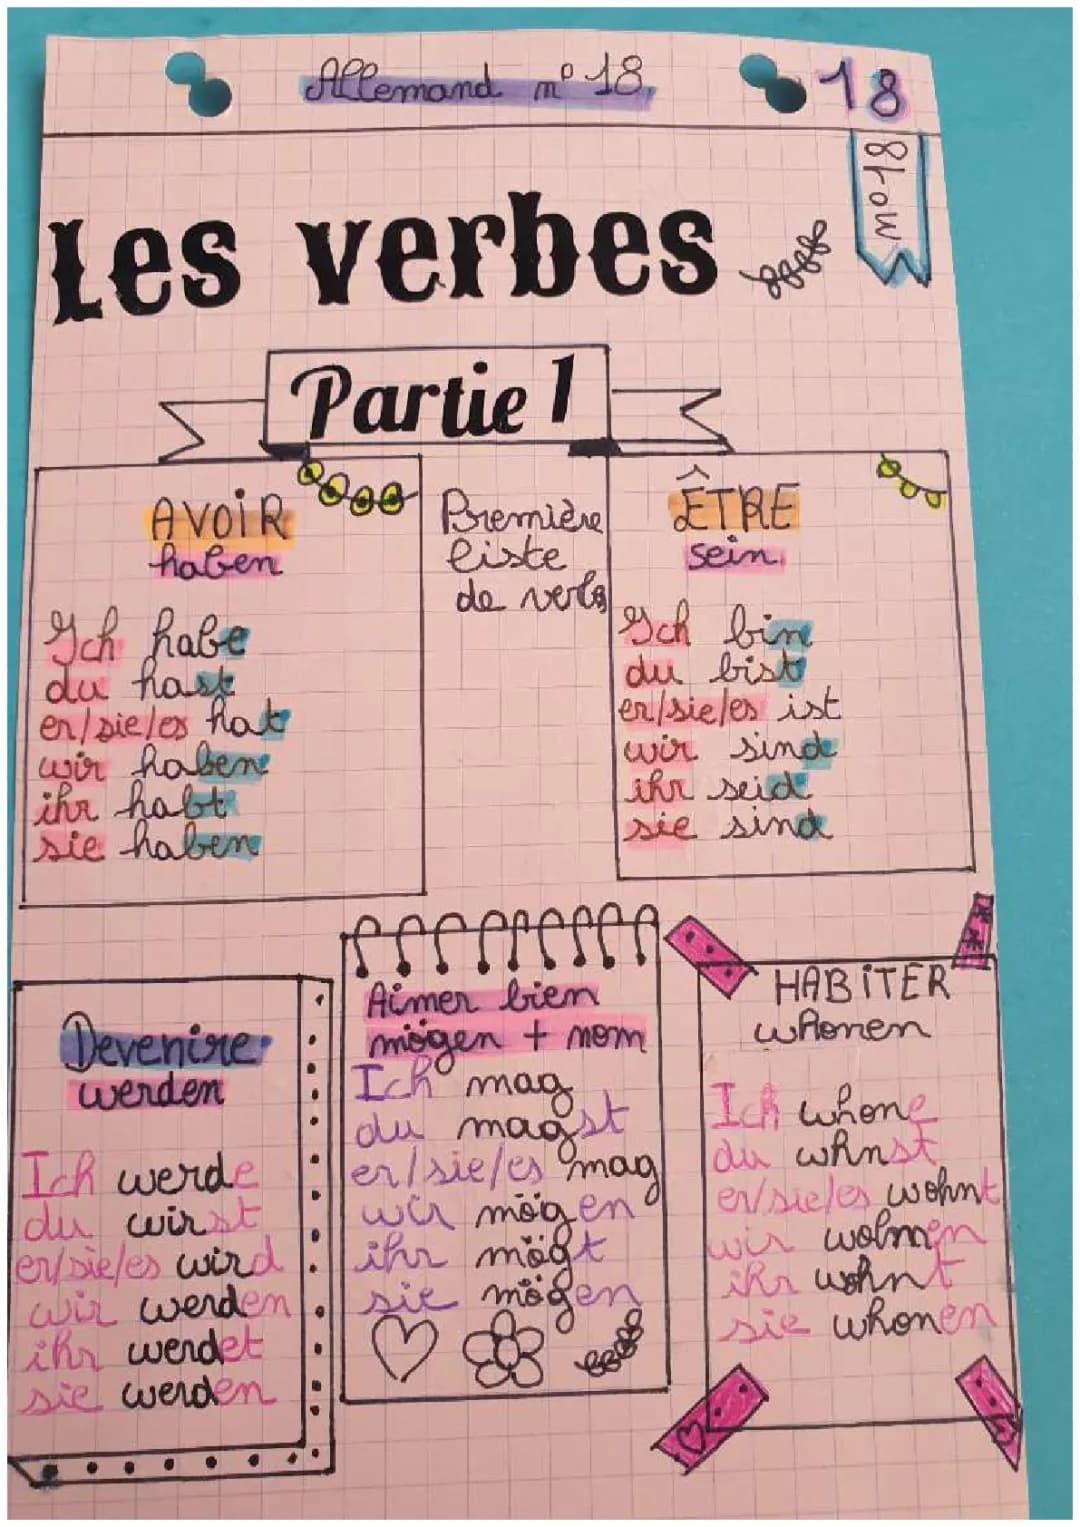 Allemand n° 18
18
n°18
Les verbes
Partie 1
AVOIR
haben
Ich habe
du hast
er/sie/es hat
wir haben
ihr habt
sie haben
Première
liste
de verbs
ÊTRE
sein
Ich bin
du bist
er/sie/es ist
wir sind
ihr seid
sie sind
Devenire
werden
Ich werde
du wirst
er/sie/es wird
wir werden
ihr werdet
sie werden
Aimer bien
mögen + nom
Ich mag
du magst
er/sie/es mag
wir mögen
ihr mögt
sie mögen
HABITER
whonen
Ich whone
du whnst
er/sie/es wohnt
wir wohnen
ihr wohnt
sie whonen